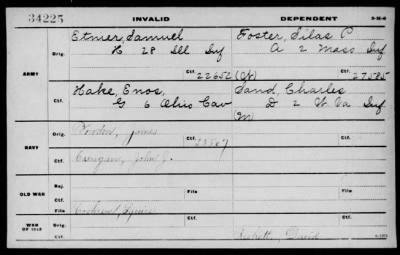 34225
INVALID
DEPENDENT
ARMY
Orig.
Etmer, Samuel
H 28 Ill Inf
Ctf.
22652 (Ct)
Foster, Silas P
A 2 Mass Inf
Ctf.
27585
Ctf.
Hake, Enos,
G 6 Ohio Cav
Sand, Charles
D 2 W. Va Inf
(M)
NAVY
Orig.
James
Ctf.
Orig.
Ctf.
Corrigan, John J.
OLD WAR
Rej.
File
File
Ctf.
WAR OF 1812
Ctf.
Ctf.
David